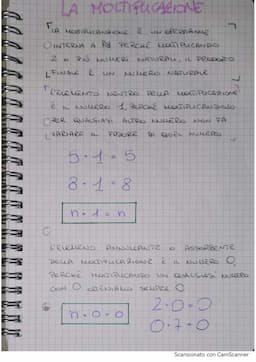 LA MOLTIPLICAZIONE
LA MOLTIPLICAZIONE È UN'OPERAZIONE
INTERNA A N PERCHÉ MOLTIPLICANDO
2 O PIÙ NUMERI NATURALI, IL PRODOTTO
FINALE È UN NUMERO NATURALE
L'ELEMENTO NEUTRO DELLA MOLTIPLICAZIONE
È IL NUMERO 1, PERCHÉ MOLTIPLICANDOLO
PER QUALSIASI ALTRO NUMERO NON FA
VARIARE IL VALORE DI QUEL NUMERO
5 · 1 = 5
8 · 1 = 8
n · 1 = n
L'ELEMENTO ANNULLANTE O ASSORBENTE
DELLA MOLTIPLICAZIONE È IL NUMERO 0,
PERCHÉ MOLTIPLICANDO UN QUALSIASI NUMERO
CON 0 OTTENIAMO SEMPRE 0
n · 0 = 0
2 · 0 = 0
0 · 7 = 0
Scansionato con CamScanner